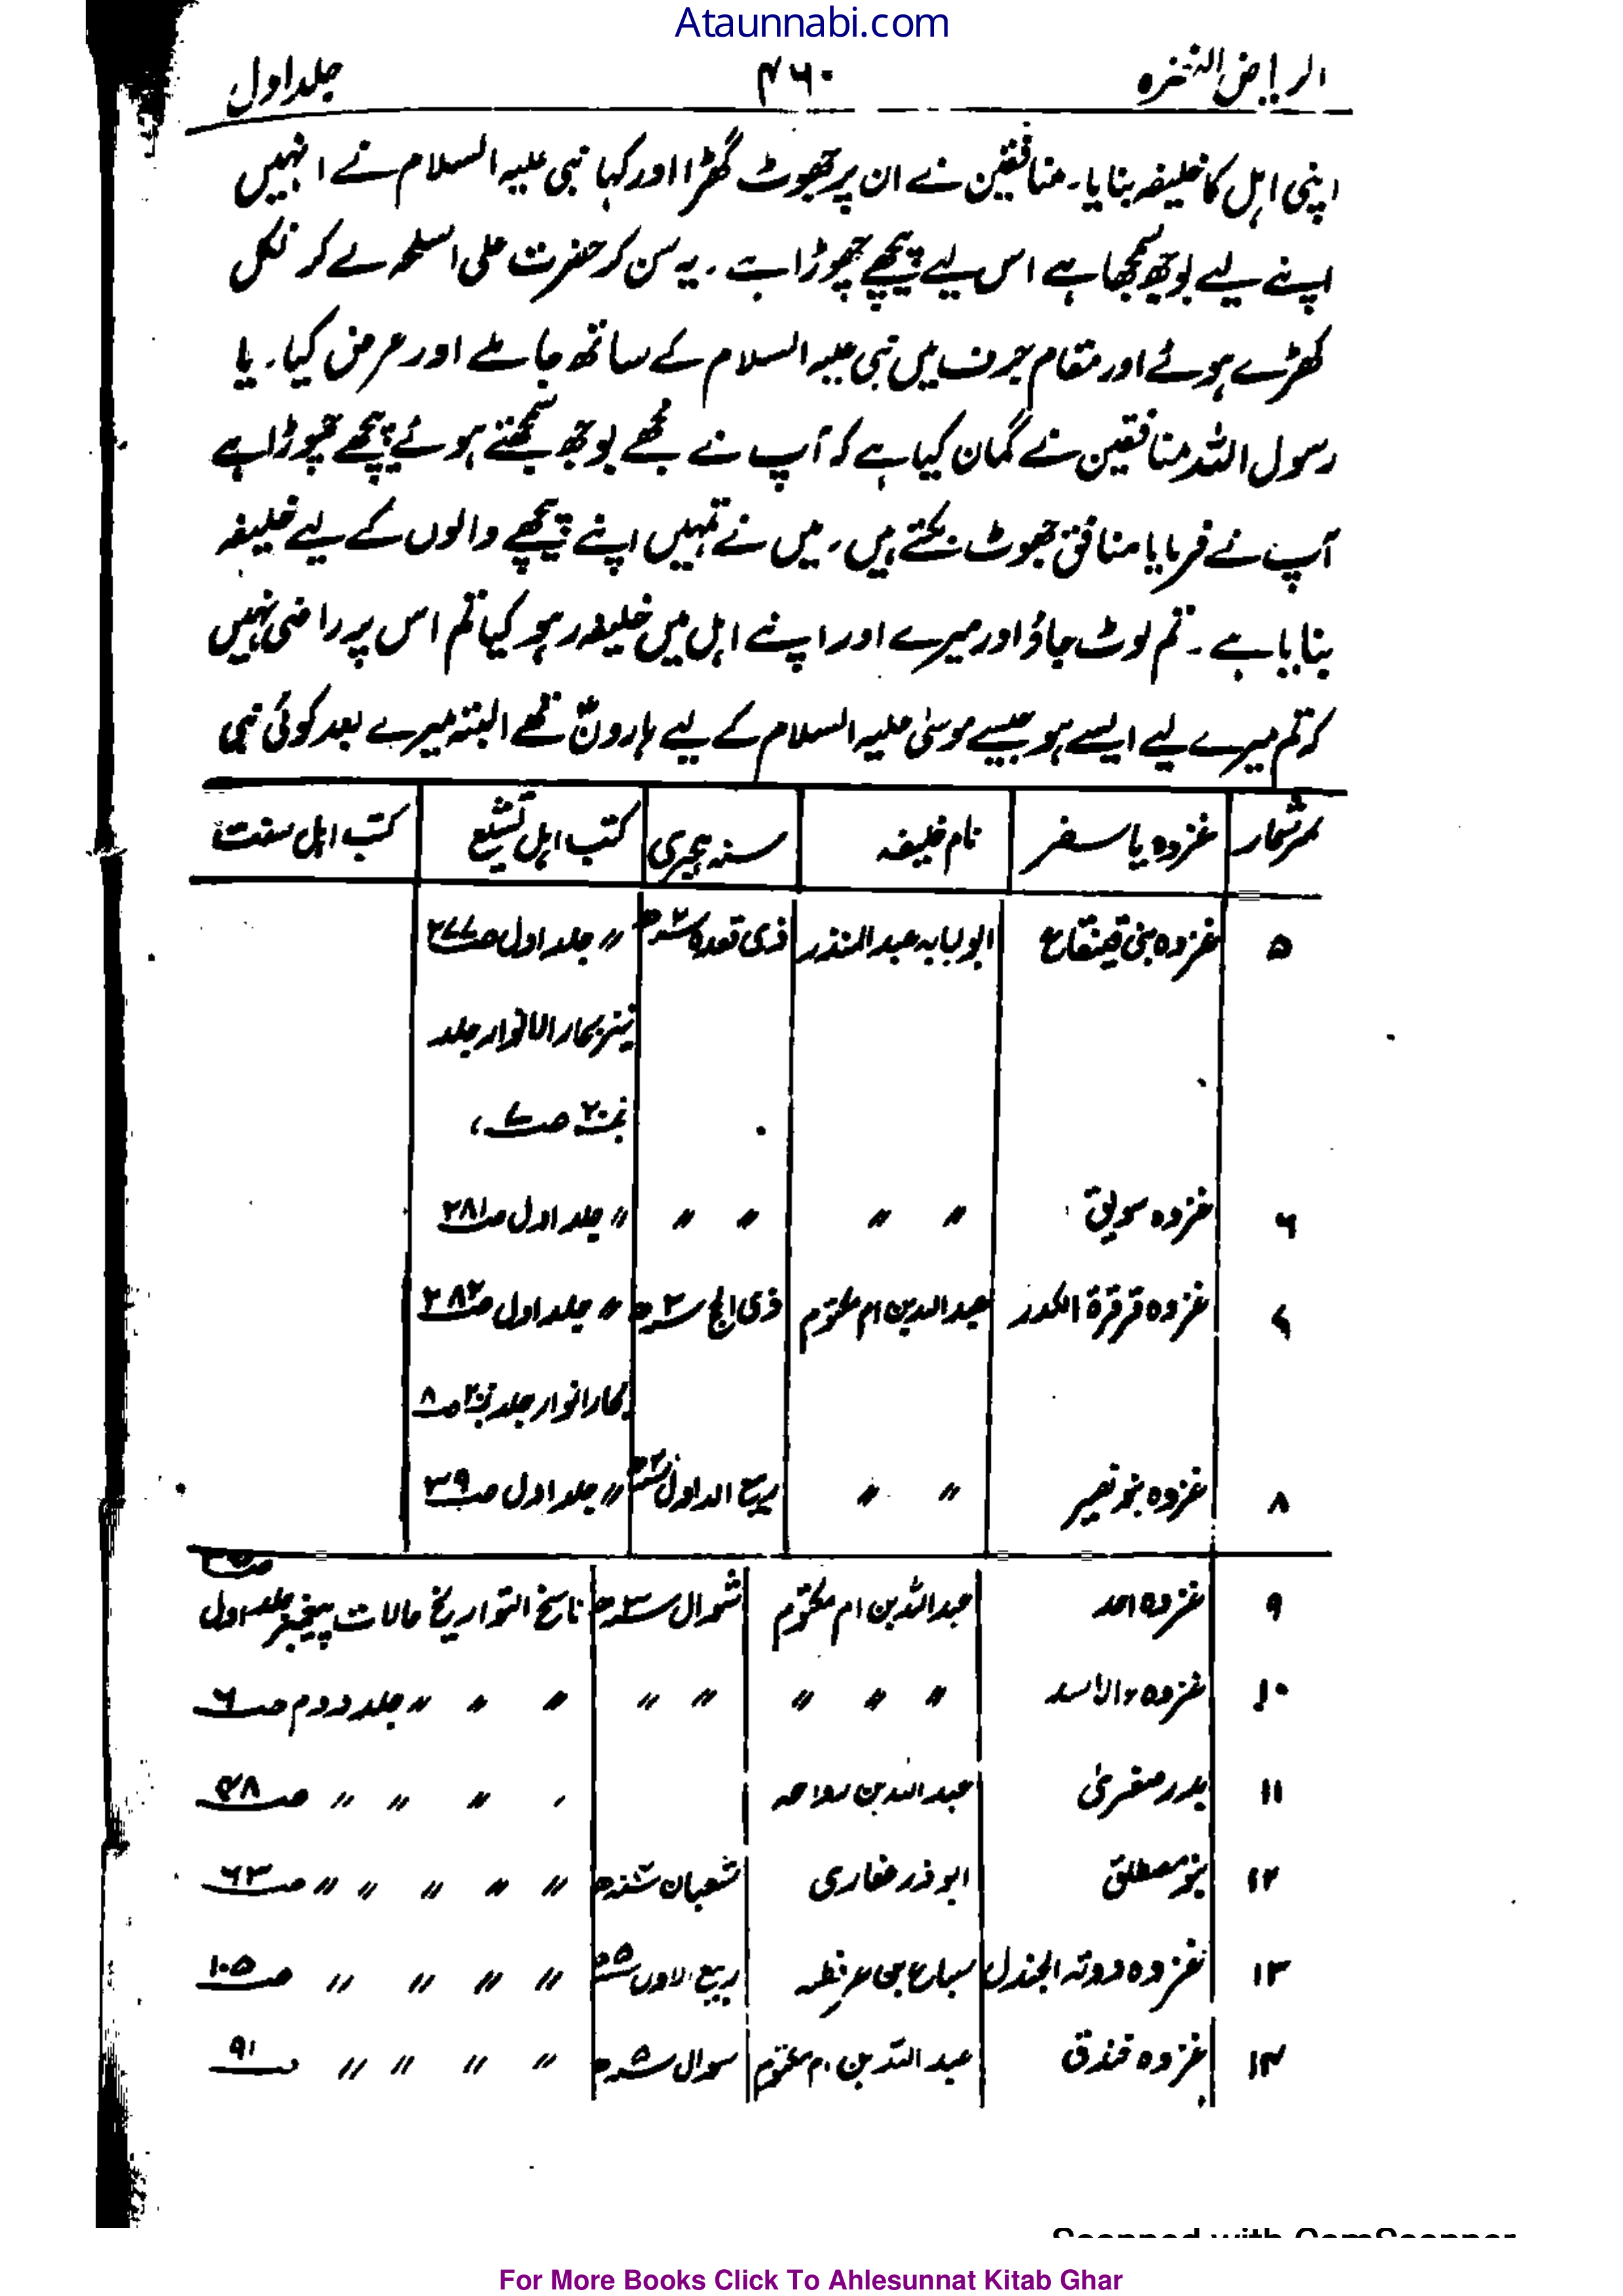 Ataunnabi.com
الریاض النضرہ ۴۶۰ جلد اول
اپنی اہل کا خلیفہ بنایا۔ منافقین نے ان پر جھوٹ گھڑا اور کہا نبی علیہ السلام نے انہیں
اپنے لیے بوجھ سمجھا ہے اس لیے پیچھے چھوڑا ہے۔ یہ سن کر حضرت علی اسلحہ لے کر نکل
کھڑے ہوئے اور مقام جرف میں نبی علیہ السلام کے ساتھ جا ملے اور عرض کیا۔ یا
رسول اللہ منافقین نے گمان کیا ہے کہ آپ نے مجھے بوجھ سمجھتے ہوئے پیچھے چھوڑا ہے
آپ نے فرمایا منافق جھوٹ بکتے ہیں، میں نے تمہیں اپنے پیچھے والوں کے لیے خلیفہ
بنایا ہے۔ تم لوٹ جاؤ اور میرے اور اپنے اہل میں خلیفہ رہو کیا تم اس پر راضی نہیں
کہ تم میرے لیے ایسے ہو جیسے موسیٰ علیہ السلام کے لیے ہارون تھے البتہ میرے بعد کوئی نبی
نمبر شمار غزوہ یا سفر نام خلیفہ سنہ ہجری کتب اہل تشیع کتب اہل سنت
۵ غزوہ بنی قینقاع ابو لبابہ عبد المنذر ذی قعدہ ۲ھ 〃 جلد اول ص۲۷۷
نیز بحار الانوار جلد
نمبر ۲۰ ص۷،
۶ غزوہ سویق 〃 〃 〃 〃 〃 جلد اول ص۲۸۱
۷ غزوہ قرقرۃ الکدر عبد اللہ بن ام مکتوم ذی الحج ۲ھ 〃 جلد اول ص۲۸۲
بحار انوار جلد نمبر۲۰ ص۸
۸ غزوہ بنو نضیر 〃 〃 ربیع الاول ۴ھ 〃 جلد اول ص۳۹
۹ غزوہ احد عبد اللہ بن ام مکتوم شوال ۳ھ ناسخ التواریخ حالات پیغمبر جلد اول
۱۰ غزوہ ء الاسد 〃 〃 〃 〃 〃 〃 〃 〃 جلد دوم ص۶
۱۱ بدر صغریٰ عبد اللہ بن رواحہ 〃 〃 〃 〃 ص۴۸
۱۲ بنو مصطلق ابو ذر غفاری شعبان 〃 〃 〃 〃 〃 ص۶۳
۱۳ غزوہ دومۃ الجندل سباع بن عرفطہ ربیع الاول ۵ھ 〃 〃 〃 〃 ص۱۰۵
۱۴ غزوہ خندق عبد اللہ بن ام مکتوم شوال ۵ھ 〃 〃 〃 〃 ص۹۱
Scanned with CamScanner
For More Books Click To Ahlesunnat Kitab Ghar